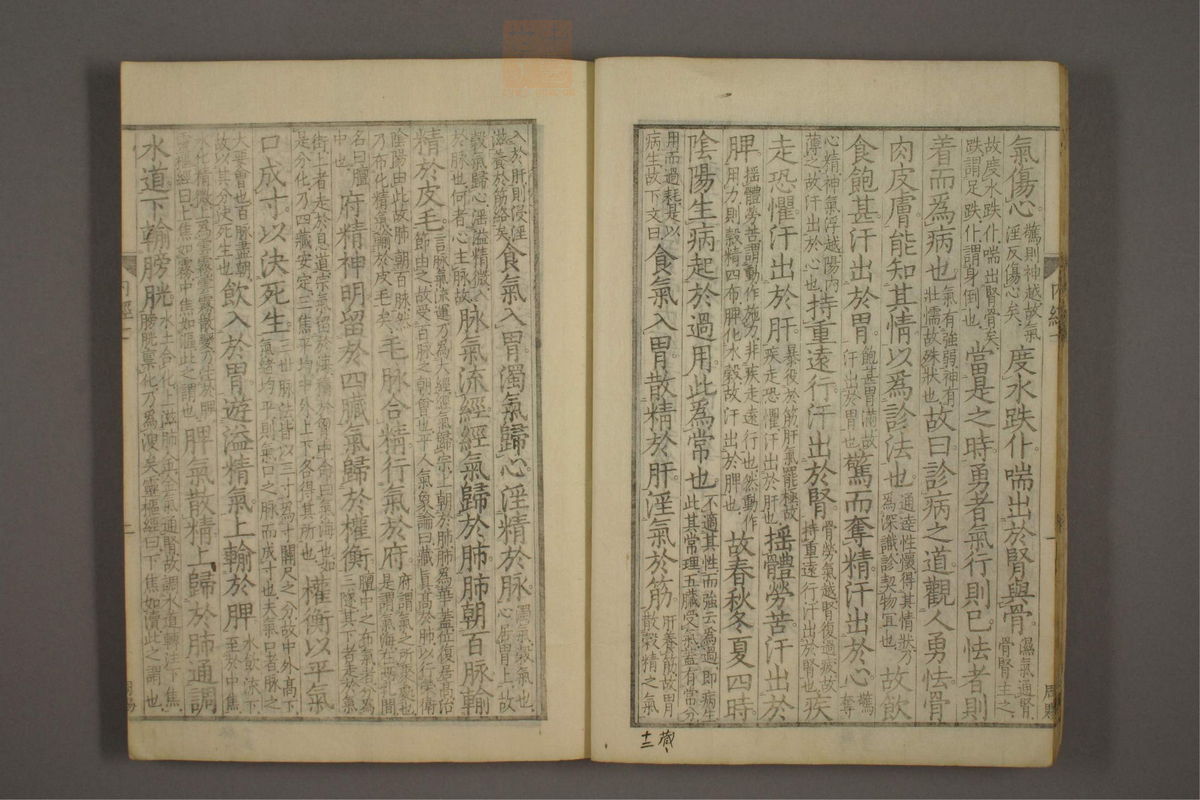 氣傷心驚則神越故氣淫反傷心矣度水跌仆喘出於腎與骨濕氣通腎骨腎主之
故度水跌仆喘出腎骨矣跌謂足跌仆謂身倒也當是之時勇者氣行則已怯者則
着而為病也氣有強弱神有壯懦故殊狀也故曰診病之道觀人勇怯骨
肉皮膚能知其情以為診法也通達性懷得其情狀乃為深識診契物宜也故飲
食飽甚汗出於胃飽甚胃滿故汗出於胃也驚而奪精汗出於心驚奪
心精神氣浮越陽內薄之故汗出於心也持重遠行汗出於腎骨勞氣越腎復過疲故持重遠行汗出於腎也疾
走恐懼汗出於肝暴役於筋肝氣罷極故疾走恐懼汗出於肝也搖體勞苦汗出於
脾搖體勞苦謂動作施力非疾走遠行也然動作用力則穀精四布脾化水穀故汗出於脾也故春秋冬夏四時
陰陽生病起於過用此為常也不適其性而強云為過即病生此其常理五臟受氣蓋有常分
用而過耗是以病生故下文曰食氣入胃散精於肝淫氣於筋肝養筋故胃散穀精之氣
入於肝則浸淫滋養於筋絡矣食氣入胃濁氣歸心淫精於脉濁氣穀氣也心居胃上故
穀氣歸心淫溢精微入於脉也何者心主脉故脉氣流經經氣歸於肺肺朝百脉輸
精於皮毛言脉氣流運乃為大經經氣歸宗上朝於肺肺為華蓋位復居高治節由之故受百脉之朝會也平人氣象論曰藏真高於肺以行榮衛
陰陽由此故肺朝百脉然乃布化精氣輸於皮毛矣毛脉合精行氣於府府謂氣之所聚處也是謂氣海在兩乳間
名曰膻中也府精神明留於四臓氣歸於權衡膻中之布氣者分為三隧其下者走於氣
街上者走於息道宗氣留於海積於胷中命曰氣海也如是分化乃四藏安定三焦平均中外上下各得其所也權衡以平氣
口成寸以決死生三世脉法皆以三寸為寸關尺之分故中外高下氣緒均平則氣口之脉而成寸也夫氣口者脉之
大要會也百脉盡朝故以其分決死生也飲入於胃遊溢精氣上輸於脾水飲流下至於中焦
水化精微上為雲霧雲霧散變乃注於脾靈樞經曰上焦如霧中焦如漚此之謂也脾氣散精上歸於肺通調
水道下輸膀胱水土合化上滋肺金金氣通腎故調水道轉注下焦膀胱稟化乃為溲矣靈樞經曰下焦如瀆此之謂也
内經
藏
十二